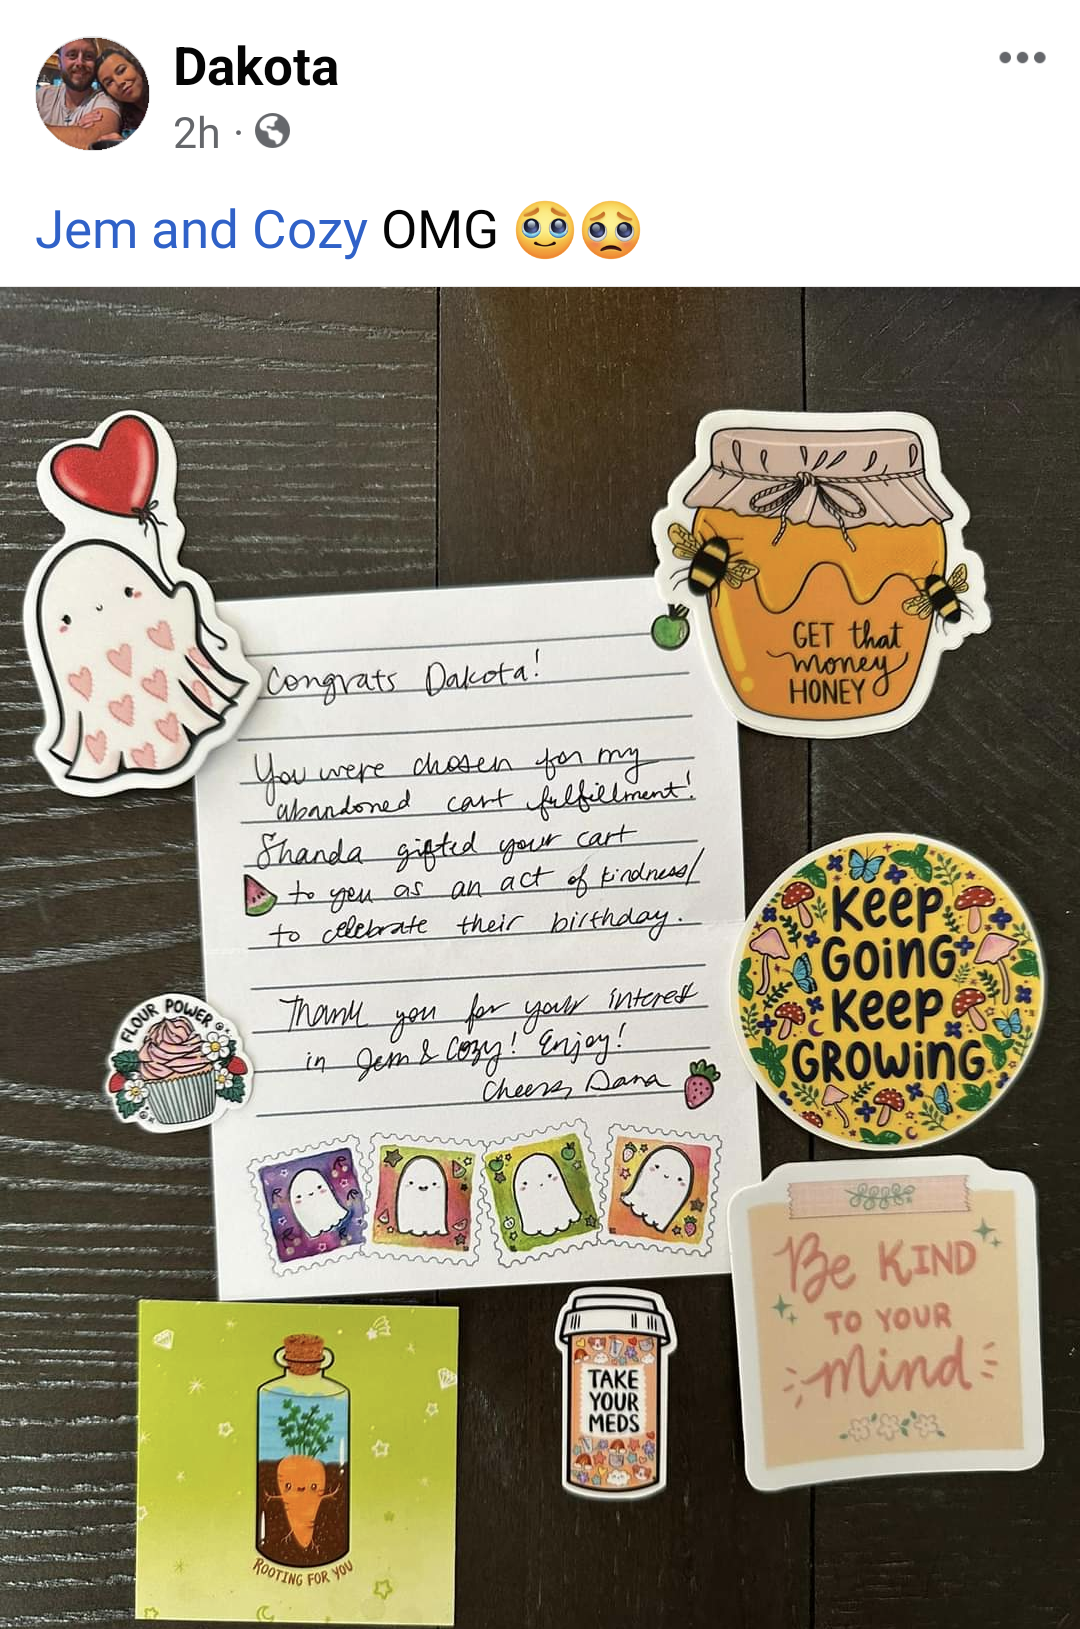 Dakota
2h ·
Jem and Cozy OMG 🥹😟
GET that
money
HONEY
Congrats Dakota!
You were chosen for my
abandoned cart fulfillment!
Shanda gifted your cart
to you as an act of kindness/
to celebrate their birthday.
Thank you for your interest
in Jem & Cozy! Enjoy!
Cheers, Dana
KEEP
GOING
KEEP
GROWING
FLOUR POWER
BE KIND
TO YOUR
mind
TAKE
YOUR
MEDS
ROOTING FOR YOU